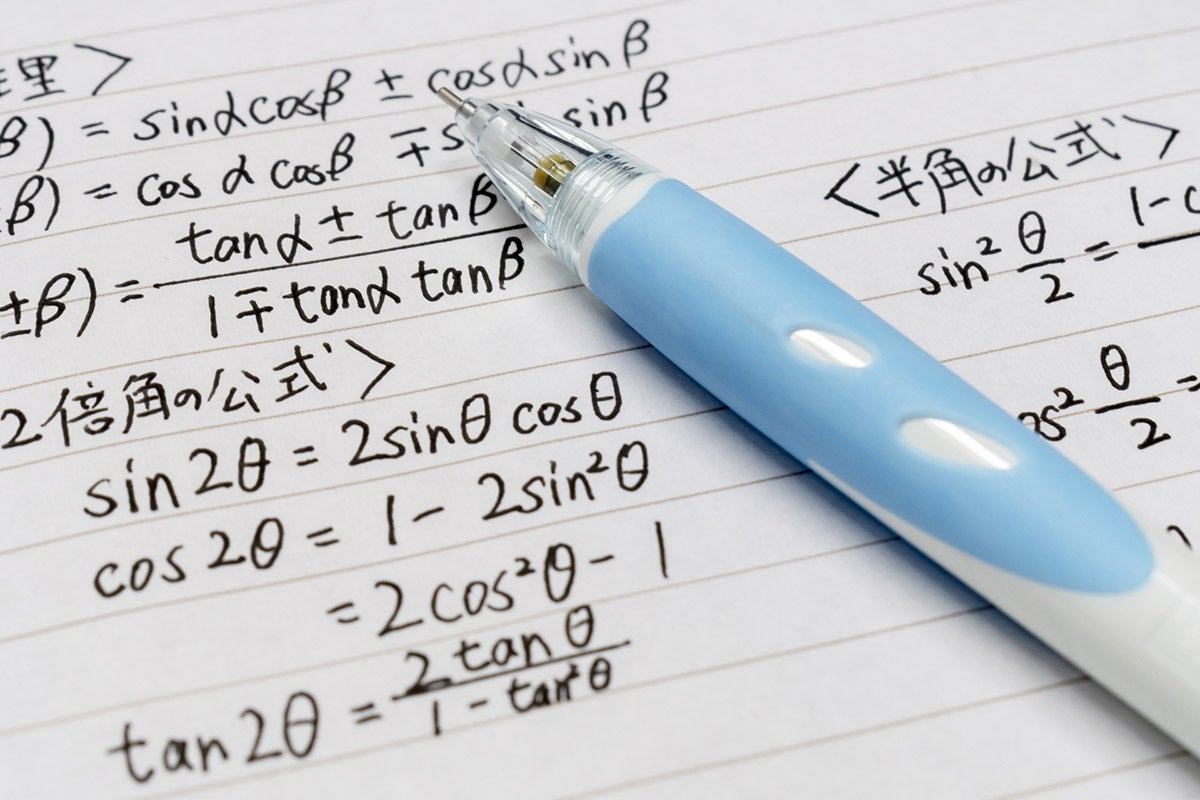 理>
β) = sinαcosβ ± cosαsinβ
β) = cosαcosβ ∓ sinβ
±β) = (tanα ± tanβ)/(1 ∓ tanα tanβ)
2倍角の公式>
sin2θ = 2sinθ cosθ
cos2θ = 1 - 2sin²θ
= 2cos²θ - 1
tan2θ = (2tanθ)/(1 - tan²θ)
<半角の公式>
sin² θ/2 = 1-c
os² θ/2 =